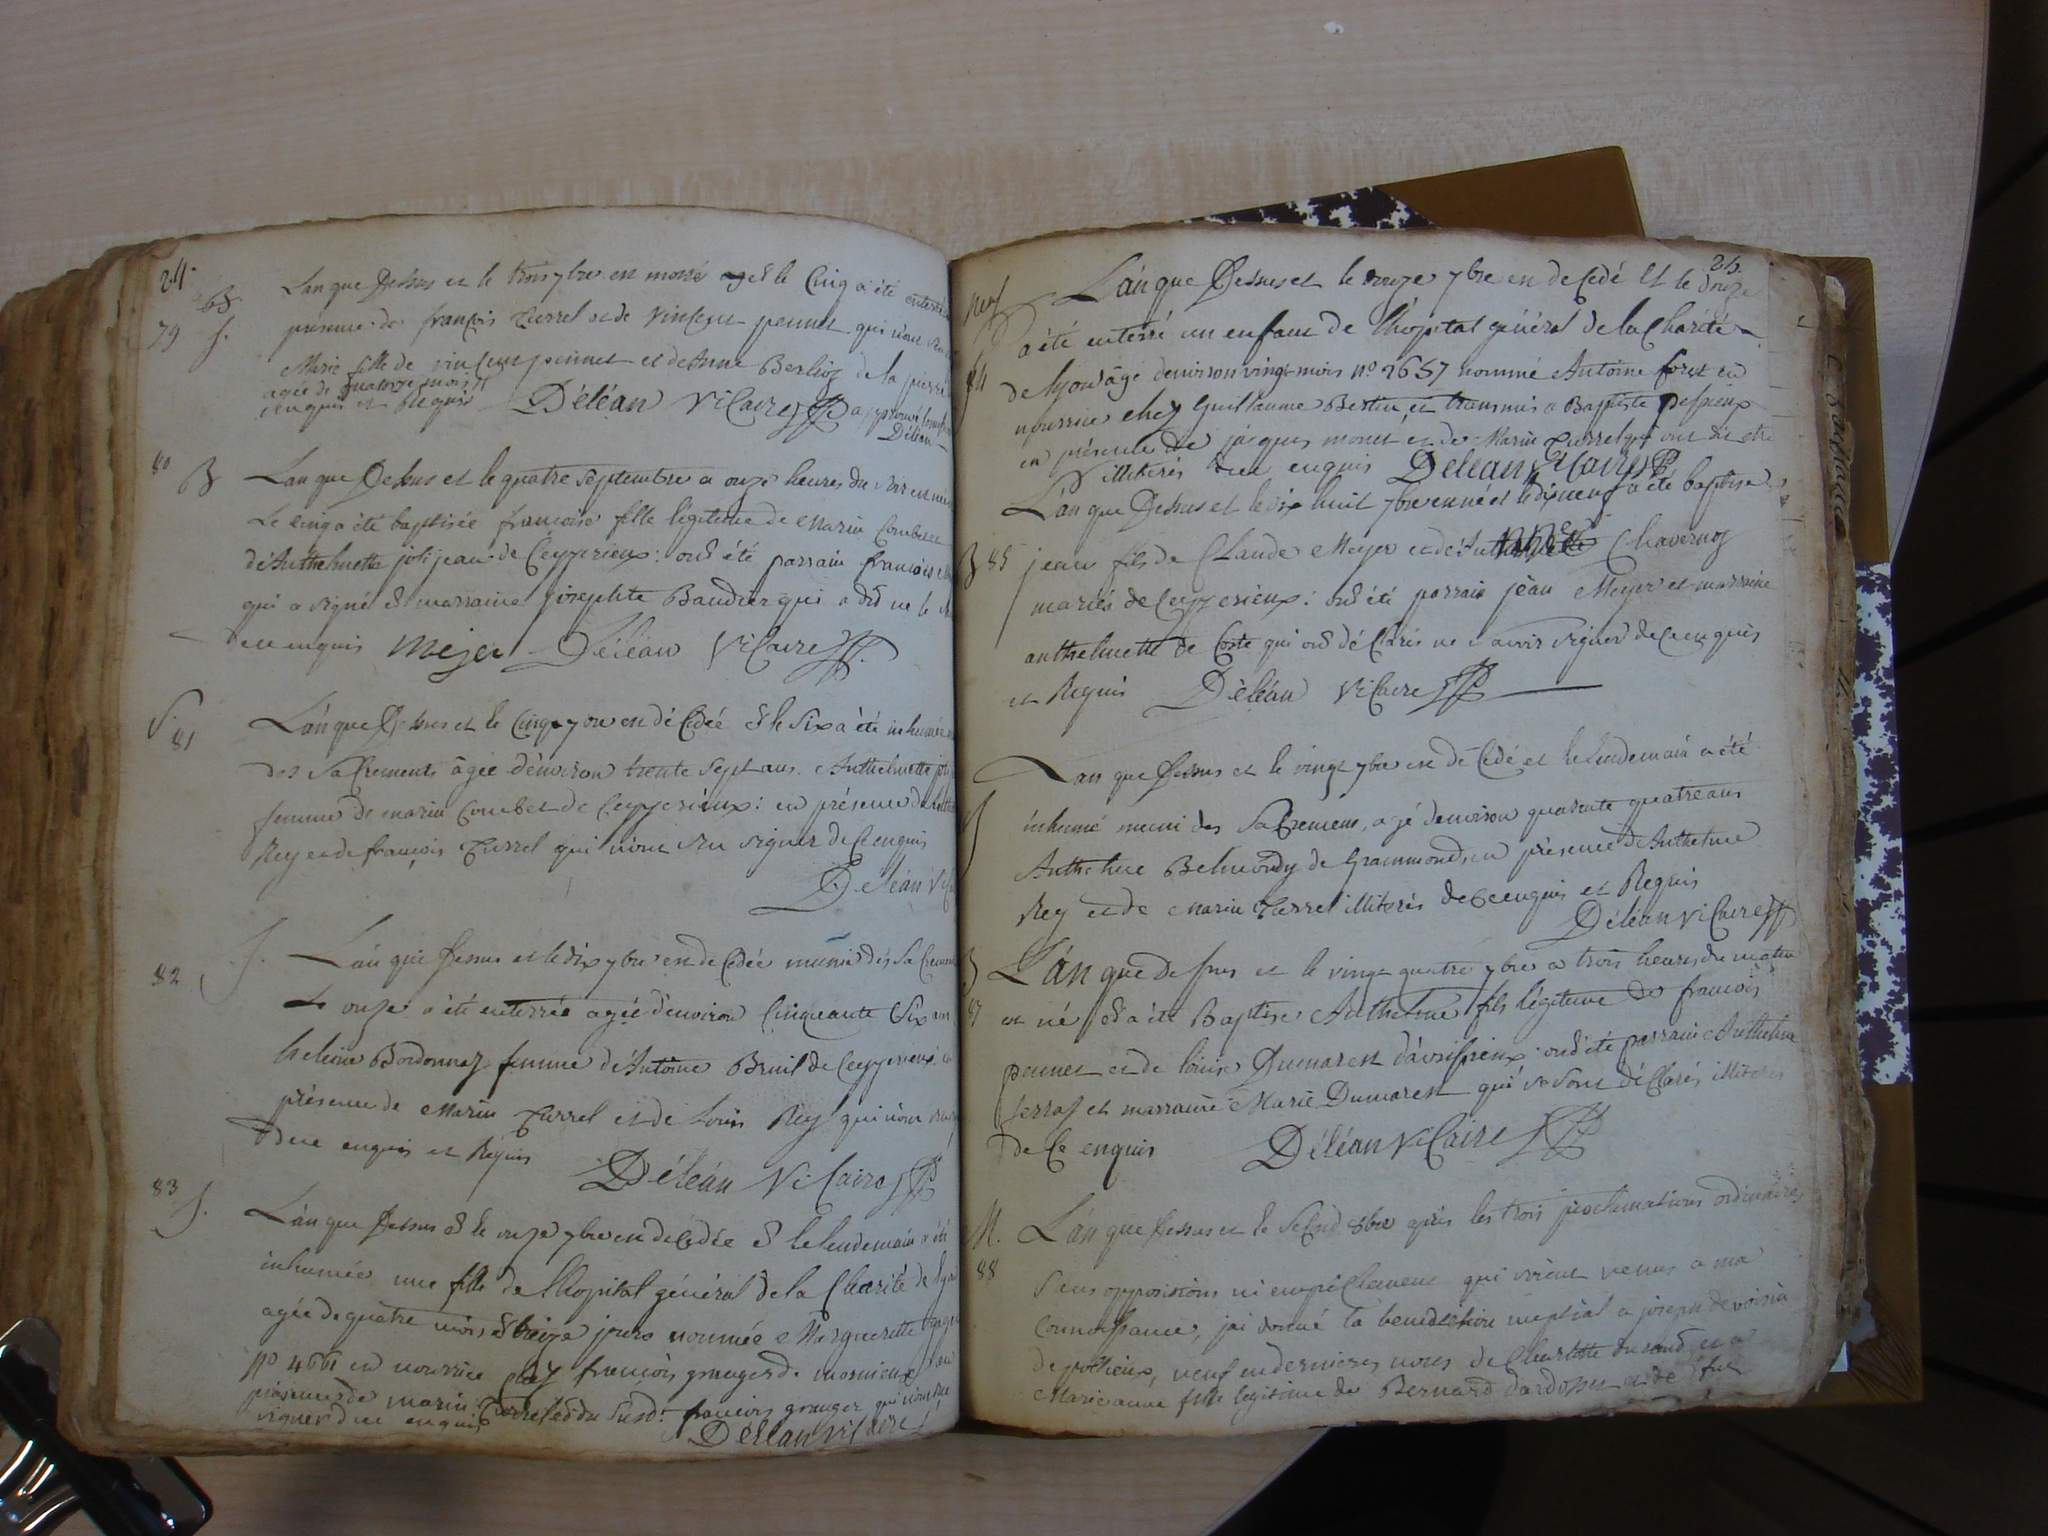 24
79 S.
L'an que Dessus et le trois 7bre est morte et le Cinq a été enterrée
présence de françois Turrel et de vincent pennet qui n'ont
Marie fille de vincent pennet et de Anne Berlioz de la
agée de quatorze mois
enquis et Requis Déléan Vicaire approuvé
Déléan
80 B
L'an que Dessus et le quatre Septembre a onze heures du soir est née
Le cinq a été baptisée françoise fille légitime de Marin Combet et
d'Anthelmette joli jean de Ceyzerieux: ont été parrain francois
qui a signé et marraine josephte Baudier qui a dit ne le
de ce enquis Mejer Déléan Vicaire
S. 81
L'an que Dessus et le Cinq 7bre est décédée et le Six a été inhumée
des Sacrements âgée d'environ trente Sept ans Anthelmette joli
femme de marin Combet de Ceyzerieux: en présence de
Rey et de françois Turrel qui n'ont sçu signer de Ce enquis
Déléan
82 S.
L'an que Dessus et le dix 7bre est décédée munie dés Sacrements
Le onze a été enterrée agée d'environ Cinquante Six ans
heleine Bordonnaz femme d'Antoine Bruil de Ceyzerieux: en
présence de Marin Turrel et de Louis Rey qui n'ont
de ce enquis et Requis Déléan Vicaire
83 S.
L'an que Dessus et le onze 7bre est décédée et le lendemain a été
inhumée une fille de l'hopital général de la Charité de Lyon
agée de quatre mois et treize jours nommée Marguerite
No 4661 en nourrice chez françois granger de
présence de marin Turrel et du Susdt. francois granger qui n'ont
signer de ce enquis Déléan Vicaire
25
L'an que Dessus et le onze 7bre est decedé et le douze
84
a été enterré un enfant de l'hopital général de la Charité
de Lyon âgé d'environ vingt mois no 2657 nommé Antoine foret en
nourrice chez Guillaume Bertin et transmis a Baptiste Dessieux
en présence de jacques monet et de Marin Turrel qui ont dit etre
illiterés de ce enquis Déléan Vicaire
L'an que Dessus et le dix huit 7bre est né et le dixneuf a été baptisé
B 85 jean fils de Claude Meyer et de Chavernoz
mariés de Ceyzerieux: ont été parrain jean Meyer et marraine
anthelmette de Coste qui ont déClarés ne savoir signer de Ce enquis
et Requis Déléan Vicaire
L'an que Dessus et le vingt 7bre est décédé et le lendemain a été
S
inhumé muni des Sacremens, agé d'environ quarante quatre ans
Anthelme Belmondy de Grammond en présence d'Anthelme
Rey et de Marin Turrel illiterés de Ce enquis et Requis
Déléan Vicaire
B L'an que dessus et le vingt quatre 7bre a trois heures du matin
87 est né et a été Baptisé Anthelme fils légitime de francois
pennet et de loüise Dumarest d'avrissieux: ont été parrain Anthelme
Serraz et marraine Marie Dumarest qui se sont déClarés illiterés
de Ce enquis Déléan Vicaire
M. L'an que Dessus et le Second 8bre après les trois proclamations ordinaires
88 Sans oppositions ni empêchement qui soient venus a ma
Connoissance, jai donné la benediction nuptial a joseph devoisin
de pothieux, veuf en dernieres noces de Charlotte durand, et a
Marieanne fille legitime de Bernard dardossu et de